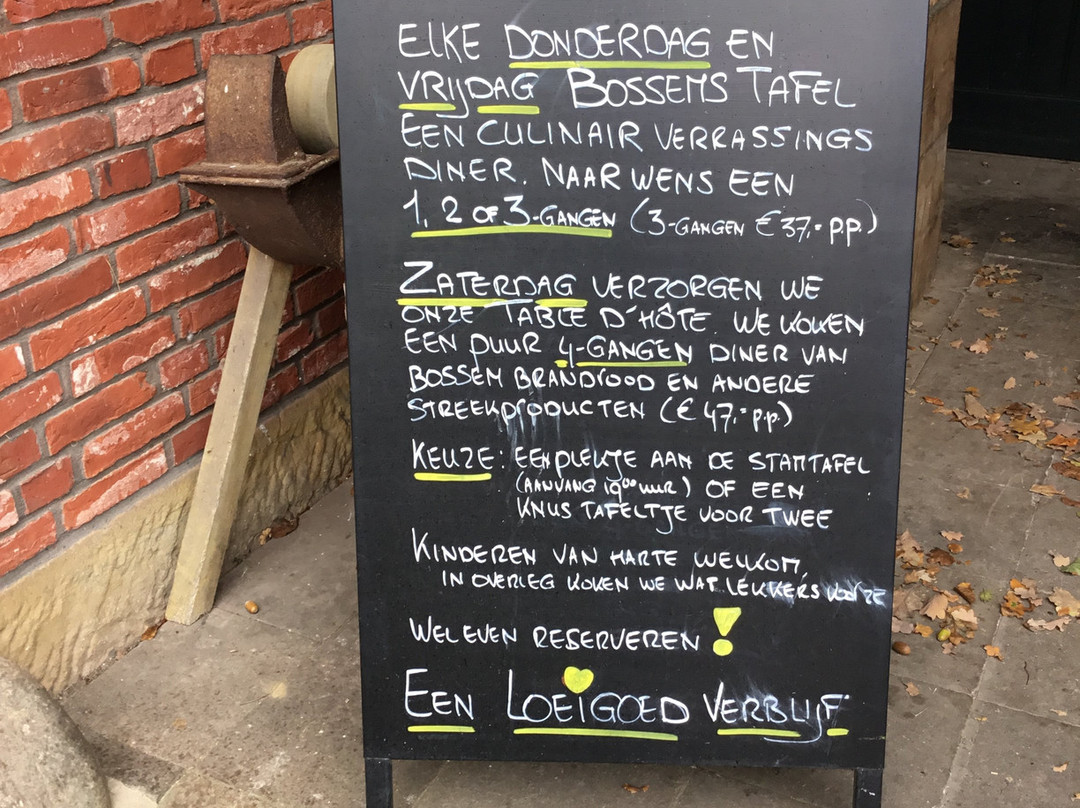 ELKE DONDERDAG EN
VRIJDAG BOSSEMS TAFEL
EEN CULINAIR VERRASSINGS
DINER. NAAR WENS EEN
1, 2 OF 3-GANGEN (3-GANGEN € 37,- P.P.)
ZATERDAG VERZORGEN WE
ONZE TABLE D'HÔTE. WE KOKEN
EEN PUUR 4-GANGEN DINER VAN
BOSSEM BRANDROOD EN ANDERE
STREEKPRODUCTEN (€ 47,- P.P.)
KEUZE: EEN PLEKJE AAN DE STAMTAFEL
(AANVANG 19⁰⁰ UUR) OF EEN
KNUS TAFELTJE VOOR TWEE
KINDEREN VAN HARTE WELKOM,
IN OVERLEG KOKEN WE WAT LEKKERS VOOR ZE
WEL EVEN RESERVEREN!
EEN LOEIGOED VERBLIJF